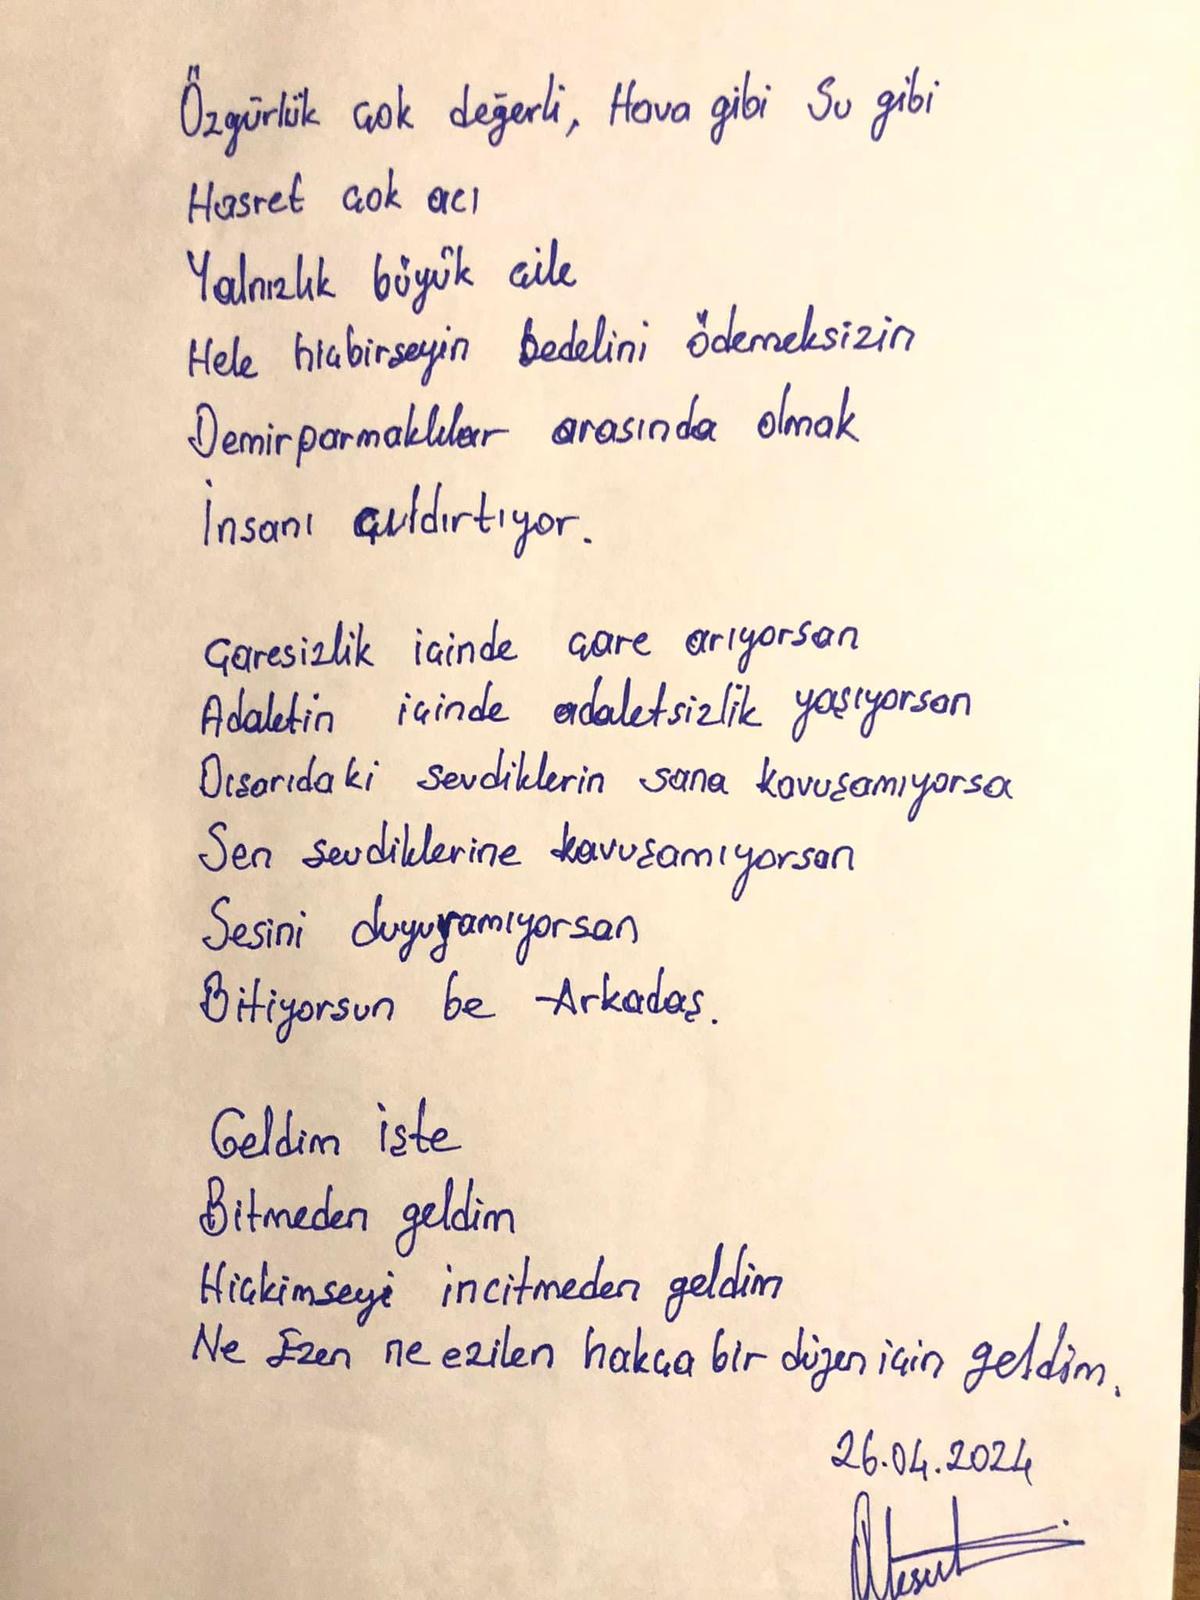 Özgürlük çok değerli, Hava gibi Su gibi
Hasret çok acı
Yalnızlık büyük çile
Hele hiçbirseyin bedelini ödemeksizin
Demirparmaklılar arasında olmak
İnsanı çıldırtıyor.
Çaresizlik içinde çare arıyorsan
Adaletin içinde adaletsizlik yaşıyorsan
Dısarıdaki sevdiklerin sana kavuşamıyorsa
Sen sevdiklerine kavuşamıyorsan
Sesini duyuramıyorsan
Bitiyorsun be Arkadaş.
Geldim işte
Bitmeden geldim
Hiçkimseyi incitmeden geldim
Ne Ezen ne ezilen hakça bir düzen için geldim.
26.04.2024